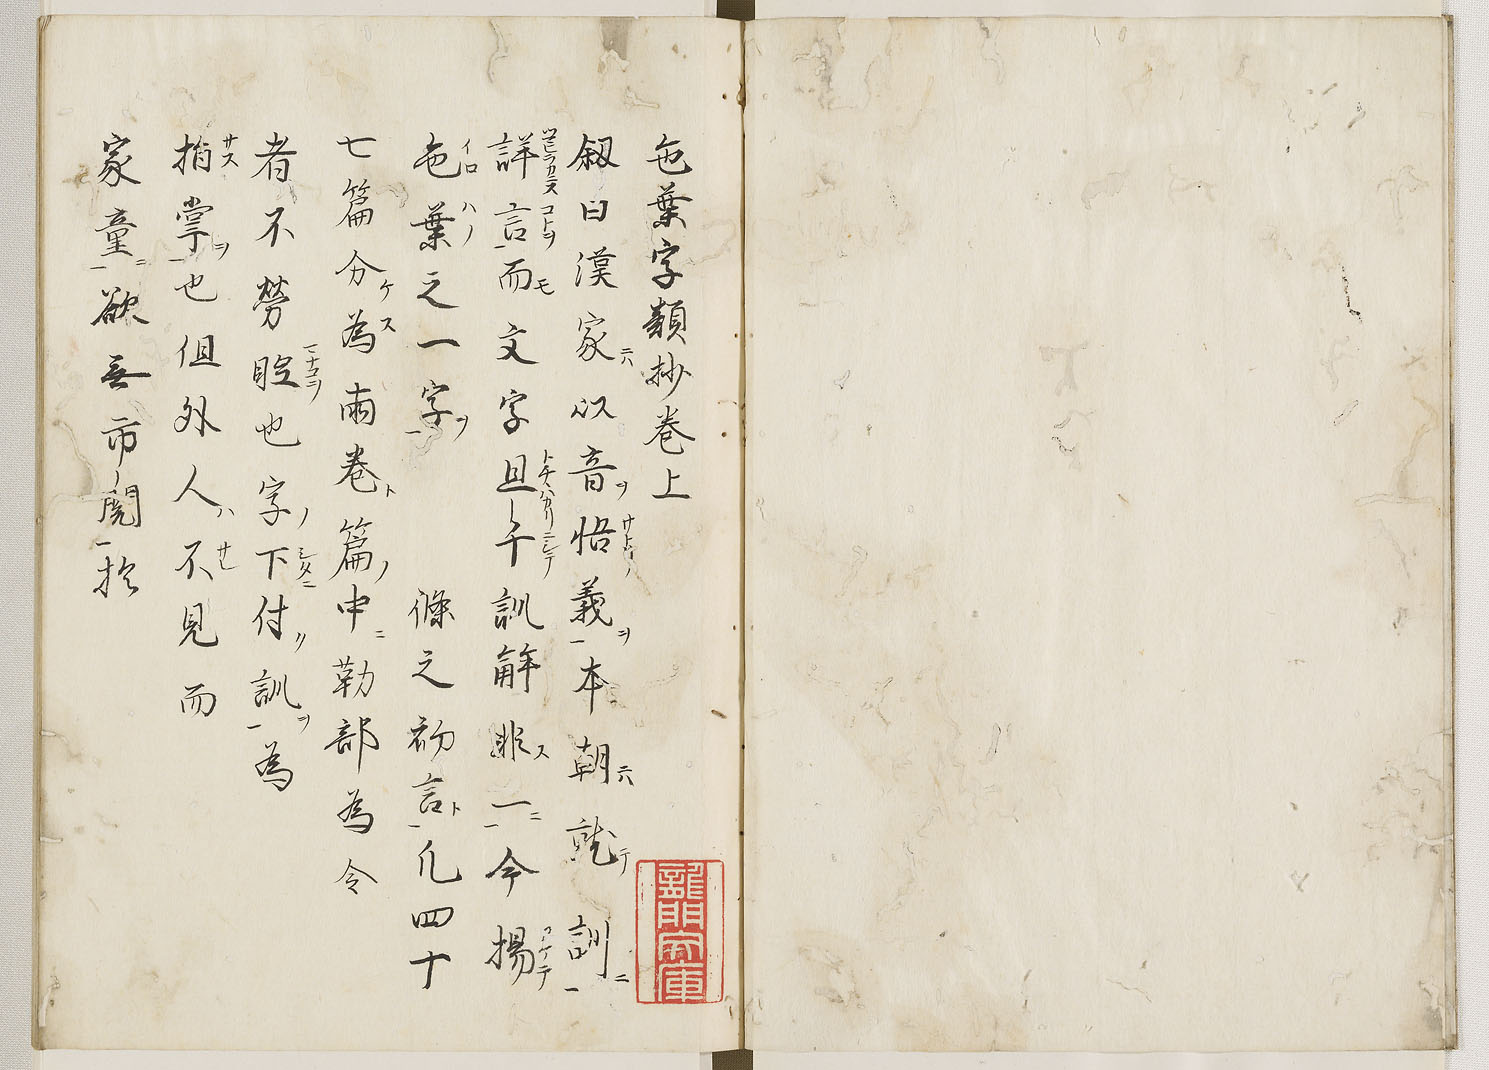 色葉字類抄巻上
叙曰漢家以音悟義本朝就訓
詳言而文字且千訓解非一今揚
色葉之一字 條之初言凡四十
七篇分為両巻篇中勒部為令
者不勞也字下付訓為
指掌也但外人不見而
家童欲無市閲於
龍門文庫